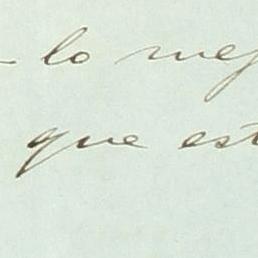 lo mej
que est